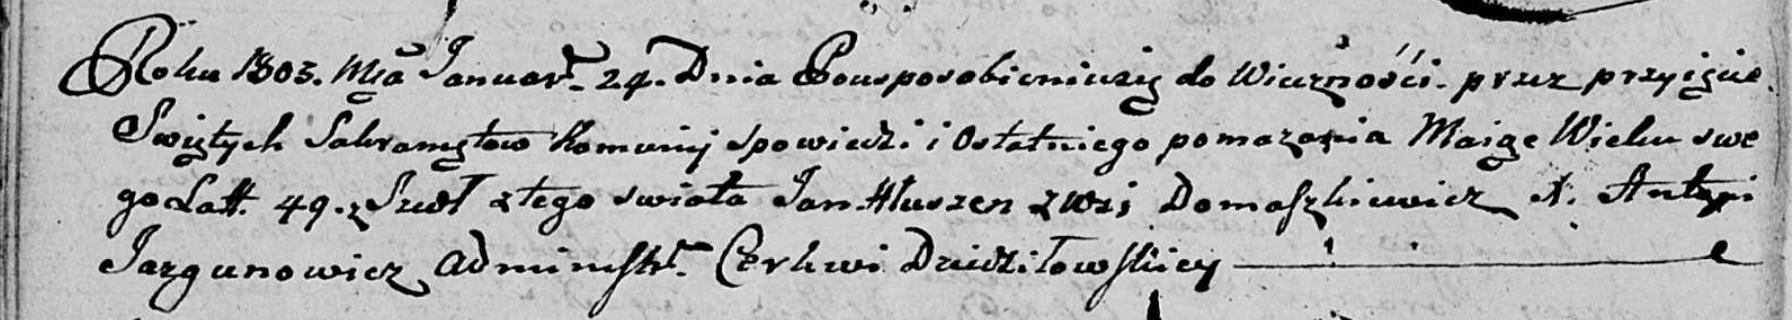 Roku 1803. Mca Januar. 24. Dnia Pousposobieniuszę do Wieczności. przez przyięcie
Swiętych Sakramętow Komunij Spowiedzi i Ostatniego pomazania Maiąc Wieku swe
go Latt. 49. Szedł z tego swiata Jan Hluszen z Wsi Domaszkiewicz X. Antypi
Jazgunowicz Administr. Cerkwi Dziedziłowskiey